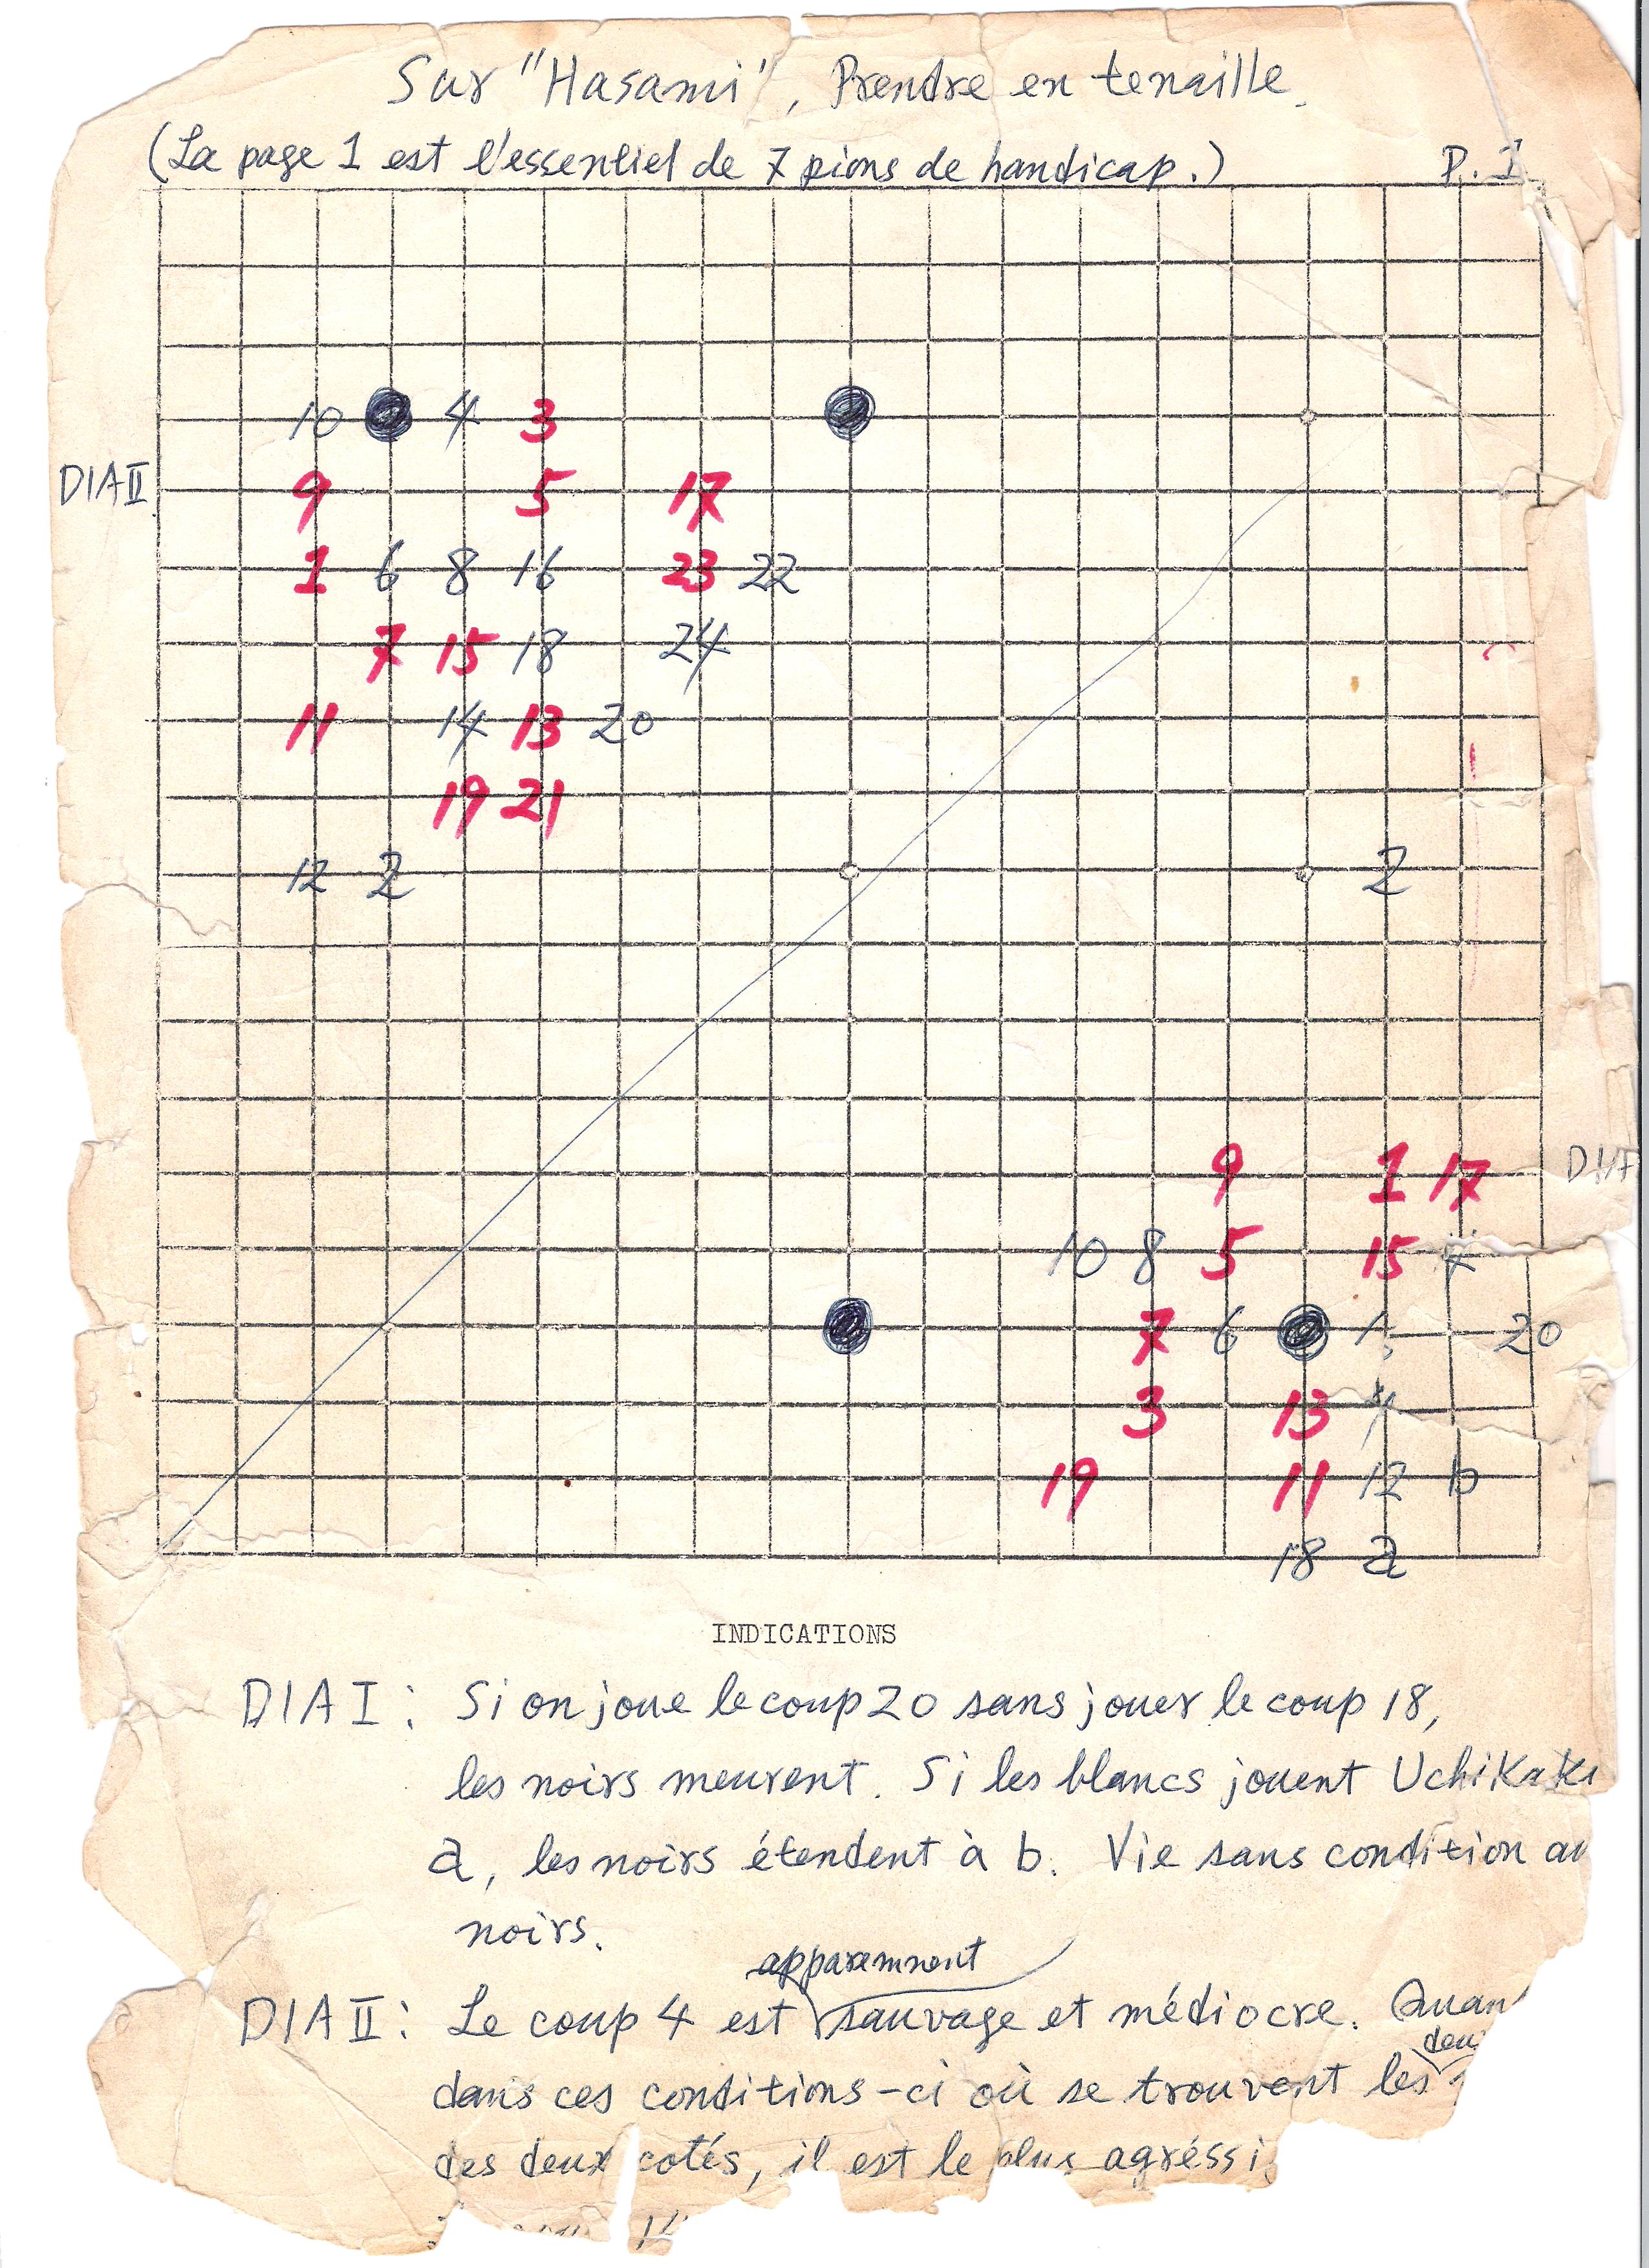 Sur "Hasami", Prendre en tenaille.
(La page 1 est l'essentiel de 7 pions de handicap.) P. 1
10 4 3
DIA II
9 5 17
1 6 8 16 23 22
7 15 18 24
11 14 13 20
19 21
12 2 2
9 1 17
10 8 5 15
7 6 20
3 13
19 11 12 b
18 a
INDICATIONS
DIA I : Si on joue le coup 20 sans jouer le coup 18,
les noirs meurent. Si les blancs jouent
a, les noirs étendent à b. Vie sans condition
noirs.
apparemment
DIA II : Le coup 4 est sauvage et médiocre.
dans ces conditions-ci où se trouvent les
des deux cotés, il est le plus